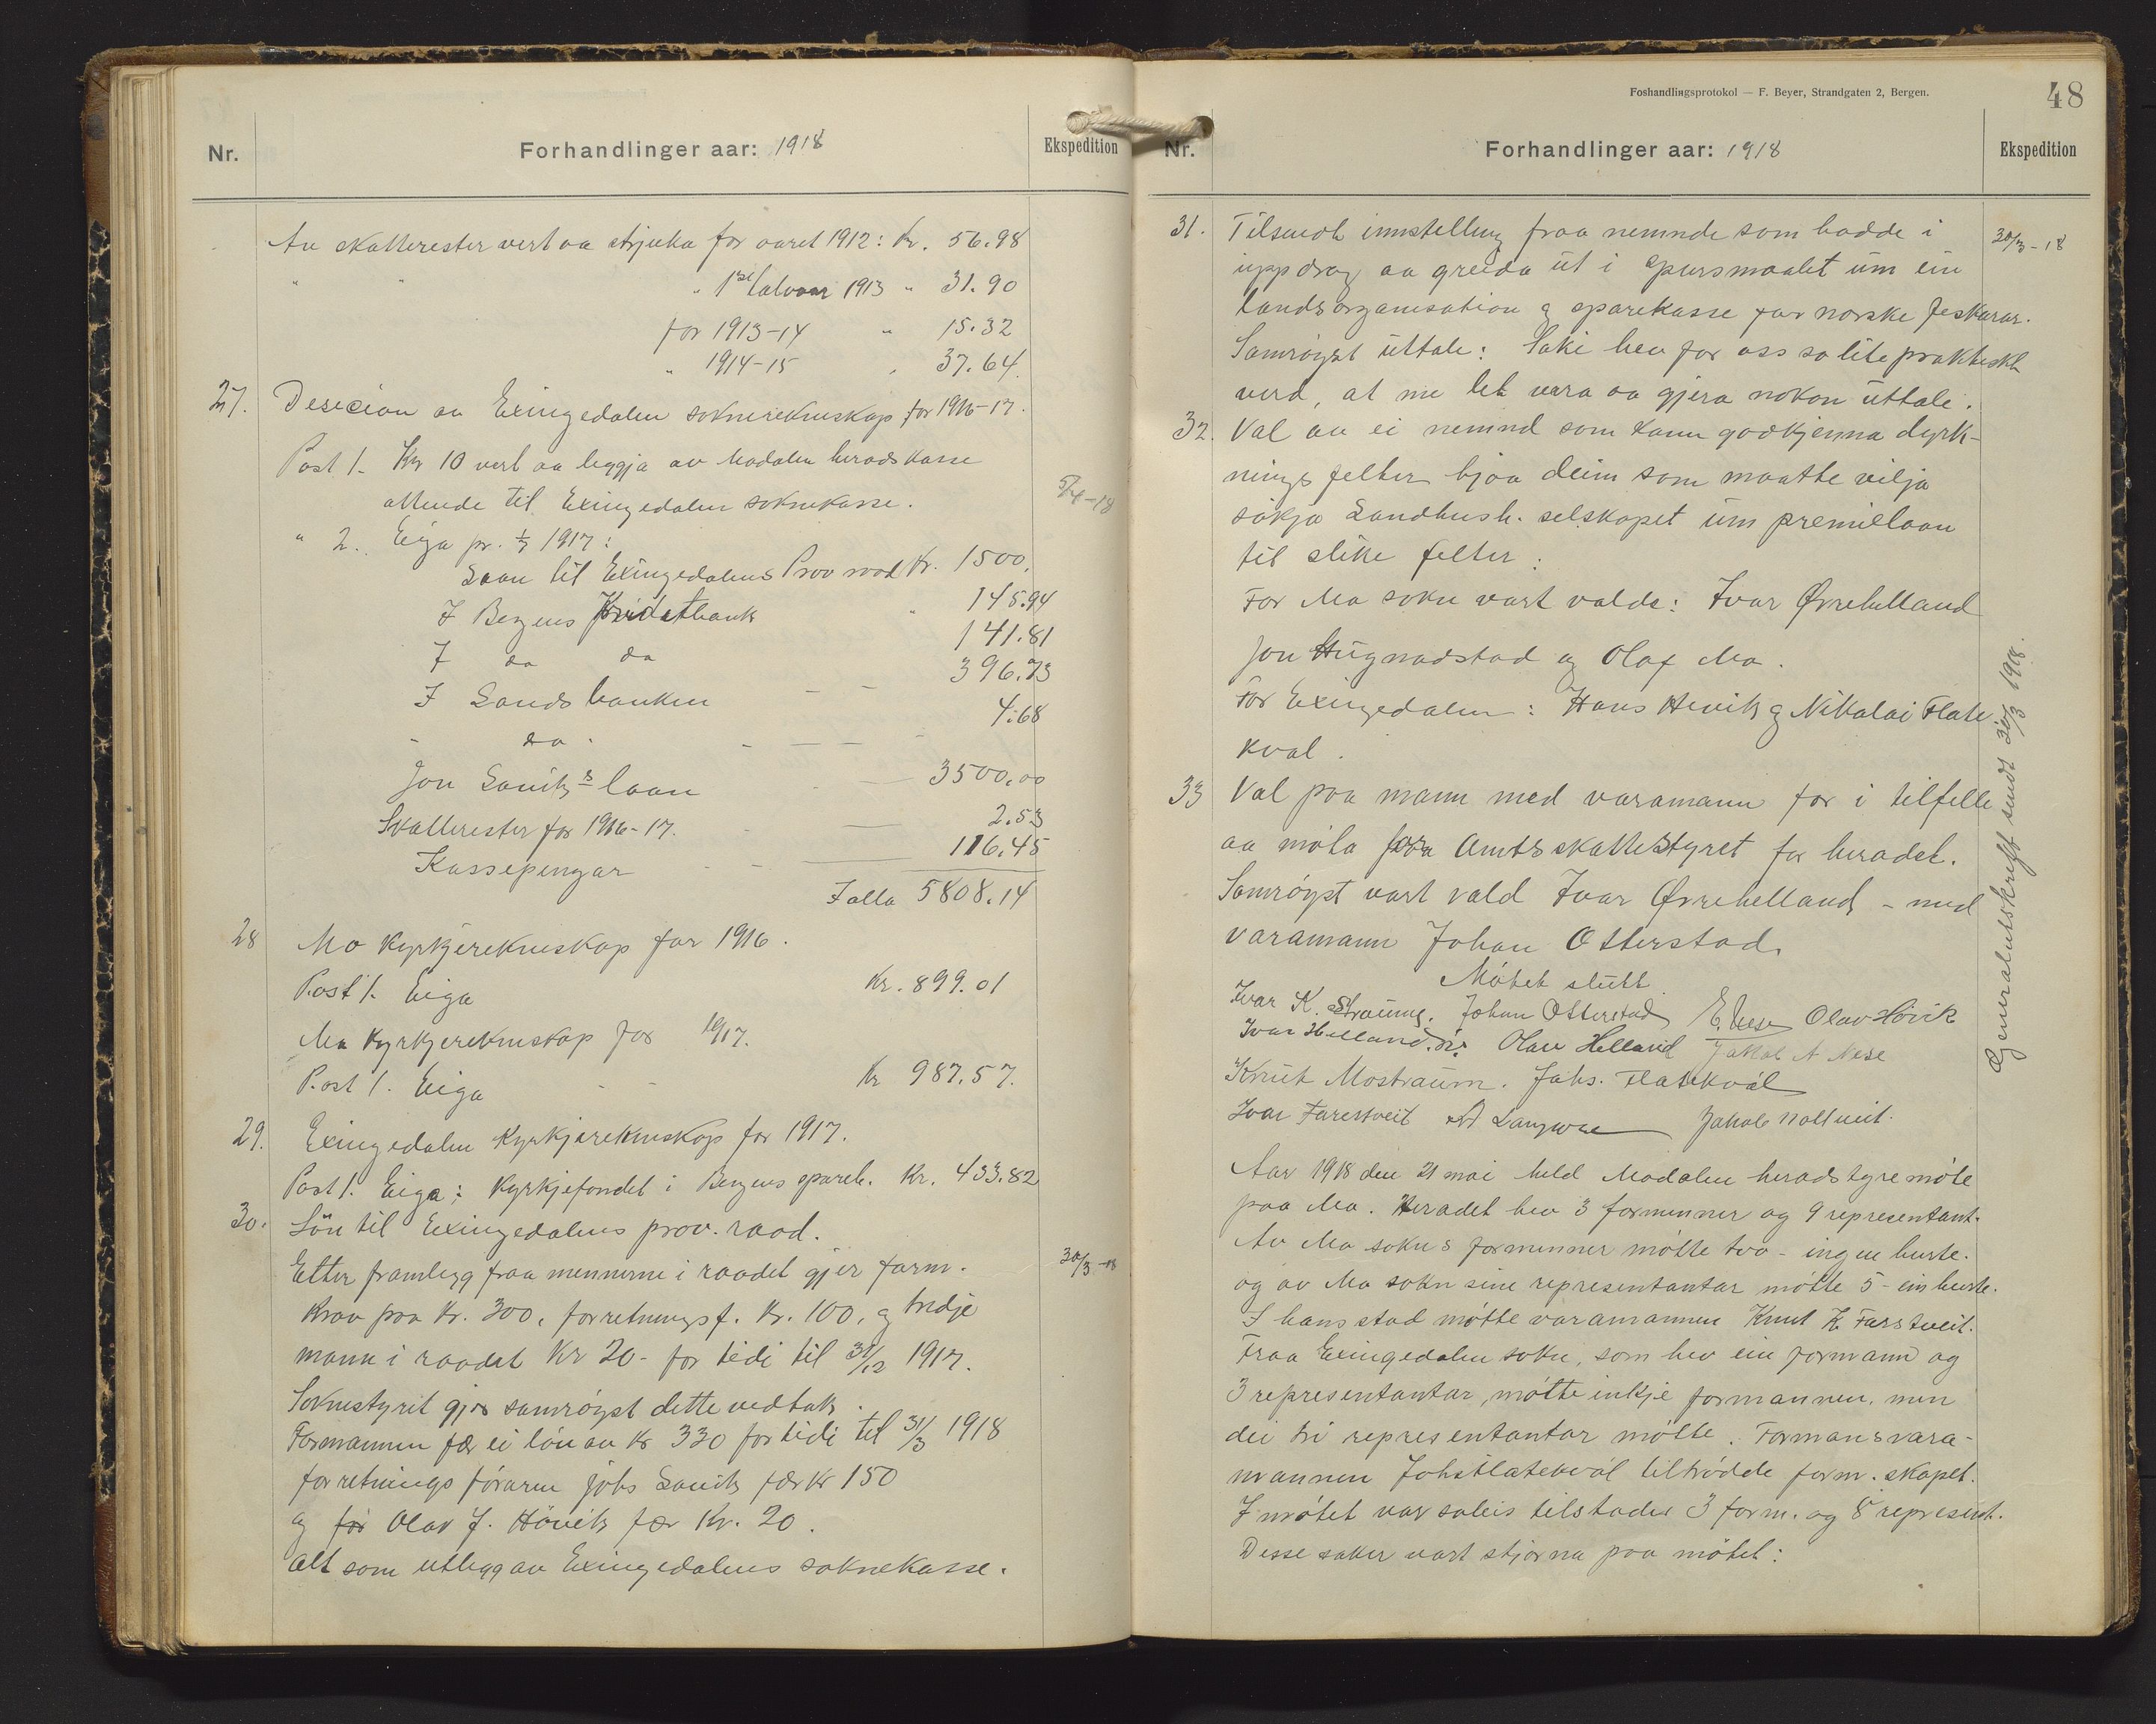 Nr.
Forhandlinger aar: 1918
Ekspedition
Av skatterester vert aa stryka for aaret 1912: Kr. 56.98
" " " 1ste halvaar 1913 " 31.90
for 1913-14 " 15.32
" 1914-15 " 37.64
27. Desicion av Exingedalen soknerekneskap for 1916-17.
Post 1. Kr 10 vert aa leggja av Modalen heradskasse
attende til Exingedalen soknekasse.
5/4-18
" 2. Eiga pr. 1/7 1917:
Laan til Exingedalens Prov. raad Kr. 1500.
I Bergens Kreditbank " 145.94
I do do 141.81
I Landsbanken - - 396.73
- do. - - - 4.68
Jon Laviks laan 3500.00
Skatterester for 1916-17. - 2.53
Kassepengar - - 116.45
Ialla 5808.14
28 Mo Kyrkjerekneskap for 1916.
Post 1. Eiga Kr. 899.01
Mo Kyrkjerekneskap for 1917.
Post 1. Eiga - - Kr 987.57.
29. Exingedalen Kyrkjerekneskap for 1917.
Post 1. Eiga: Kyrkjefondet i Bergens spareb. Kr. 433.82
30. Løn til Exingedalens prov. raad.
Etter framlegg fraa mennerne i raadet gjer form.
30/3-18
krav paa Kr. 300, forretningsf. Kr. 100, og tridje
mann i raadet Kr 20- for tidi til 31/12 1917.
Soknestyret gjer samrøyst dette vedtak.
Formannen fær ei løn av Kr 330 for tidi til 31/3 1918
forretningsføraren Johs Lavik fær Kr 150
og før Olav J. Høvik fær Kr. 20.
alt som utlegg av Exingedalens soknekasse.
Foshandlingsprotokol — F. Beyer, Strandgaten 2, Bergen.
48
Nr.
Forhandlinger aar: 1918
Ekspedition
31. Tilsendt innstelling fraa nemnde som hadde i
30/3-18
uppdrag aa greida ut i spursmaalet um ein
landsorganisation og sparekasse for norske feskarar.
Samrøyst uttale: Saki hev for oss so lite praktiskt
verd, at me let vera aa gjera nokon uttale.
32. Val av ei nemnd som kann godkjenna dyrk-
ningsfelter hjaa deim som maatte vilja
søkja Landhush. selskapet um premielaan
til slike felter:
For Mo sokn vart valde: Ivar Øvrehelland
Jon Hugnadstad og Olaf Mo.
For Exingedalen: Hans Henrik og Nikolai Flate-
kval.
33 Val paa mann med varamann for i tilfelle
aa møta fraa Amtsskattestyret for heradet.
Samrøyst vart vald Ivar Øvrehelland - med
varamann Johan Otterstad.
Generalutskrift sendt 30/3 1918.
Møtet slutt.
Ivar K. Straume. Johan Otterstad E. Nese Olav Høvik
Ivar Helland. Olav Helland Jakob A Nese
Knut Mostraum. Johs. Flatekvål
Ivar Farestveit Jakob Nottveit.
Aar 1918 den 21 mai held Modalen heradstyre møte
paa Mo. Heradet hev 3 formenner og 9 representant.
Av Mo sokns formenner møtte tvo - ingen burte.
og av Mo sokn sine representantar møtte 5 - ein burte.
I hans stad møtte varamannen Knut K. Farstveit.
Fraa Exingedalen sokn, som hev ein formann og
3 representantar, møtte inkje formannen, men
dei tri representantar møtte. Formansvara-
mannen Johs Flatekvål tiltrødde form.skapet.
I møtet var saleis tilstades 3 form. og 8 represent.
Desse saker vart styrna paa møtet: